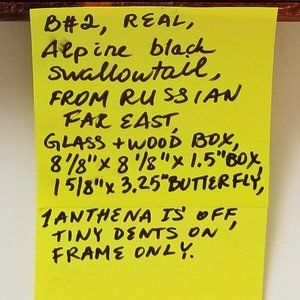 B#2, REAL,
Alpine black
swallowtail,
FROM RUSSIAN
FAR EAST,
GLASS + WOOD BOX,
8 1/8" X 8 1/8" X 1.5" BOX
1 5/8" X 3.25" BUTTERFLY,
1 ANTHENA IS OFF,
TINY DENTS ON
FRAME ONLY.